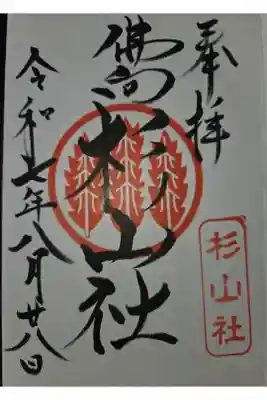 奉拝
杉山社
佛向杉山社
令和七年八月廿八日